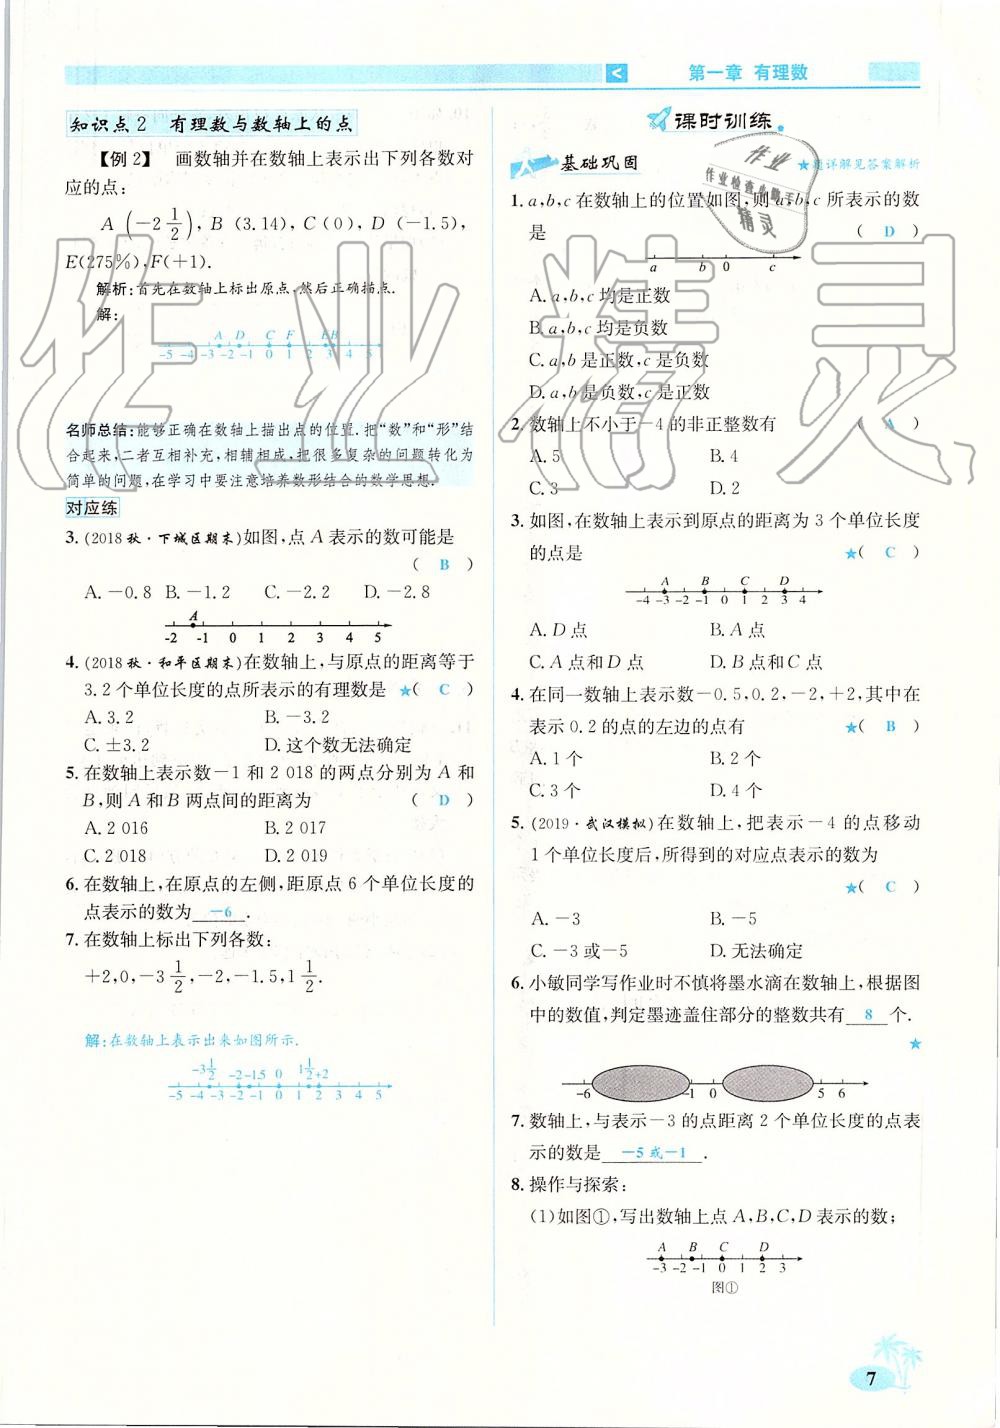 第一章 有理数
知识点2 有理数与数轴上的点
【例2】 画数轴并在数轴上表示出下列各数对
应的点:
A(-2 1/2),B(3.14),C(0),D(-1.5),
E(275%),F(+1).
解析:首先在数轴上标出原点,然后正确描点.
解:
A D C F E B
-5 -4 -3 -2 -1 0 1 2 3 4 5
名师总结:能够正确在数轴上描出点的位置.把“数”和“形”结
合起来,二者互相补充,相辅相成,把很多复杂的问题转化为
简单的问题,在学习中要注意培养数形结合的数学思想.
对应练
3.(2018秋·下城区期末)如图,点A表示的数可能是
( B )
A.-0.8 B.-1.2 C.-2.2 D.-2.8
A
-2 -1 0 1 2 3 4 5
4.(2018秋·和平区期末)在数轴上,与原点的距离等于
3.2个单位长度的点所表示的有理数是 ★( C )
A.3.2 B.-3.2
C.±3.2 D.这个数无法确定
5.在数轴上表示数-1和2 018的两点分别为A和
B,则A和B两点间的距离为 ( D )
A.2 016 B.2 017
C.2 018 D.2 019
6.在数轴上,在原点的左侧,距原点6个单位长度的
点表示的数为 -6 .
7.在数轴上标出下列各数:
+2,0,-3 1/2,-2,-1.5,1 1/2.
解:在数轴上表示出来如图所示.
-3 1/2 -2 -1.5 0 1 1/2 +2
-5 -4 -3 -2 -1 0 1 2 3 4 5
课时训练
基础巩固 ★题详解见答案解析
1.a,b,c在数轴上的位置如图,则a,b,c所表示的数
是 ( D )
a b 0 c
A.a,b,c均是正数
B.a,b,c均是负数
C.a,b是正数,c是负数
D.a,b是负数,c是正数
2.数轴上不小于-4的非正整数有 ( A )
A.5 B.4
C.3 D.2
3.如图,在数轴上表示到原点的距离为3个单位长度
的点是 ★( C )
A B C D
-4 -3 -2 -1 0 1 2 3 4
A.D点 B.A点
C.A点和D点 D.B点和C点
4.在同一数轴上表示数-0.5,0.2,-2,+2,其中在
表示0.2的点的左边的点有 ★( B )
A.1个 B.2个
C.3个 D.4个
5.(2019·武汉模拟)在数轴上,把表示-4的点移动
1个单位长度后,所得到的对应点表示的数为
★( C )
A.-3 B.-5
C.-3或-5 D.无法确定
6.小敏同学写作业时不慎将墨水滴在数轴上,根据图
中的数值,判定墨迹盖住部分的整数共有 8 个.
★
-6 -1 0 5 6
7.数轴上,与表示-3的点距离2个单位长度的点表
示的数是 -5或-1 .
8.操作与探索:
(1)如图①,写出数轴上点A,B,C,D表示的数;
A B C D
-3 -2 -1 0 1 2 3
图①
7
作业精灵
作业
作业检查小助手
精灵